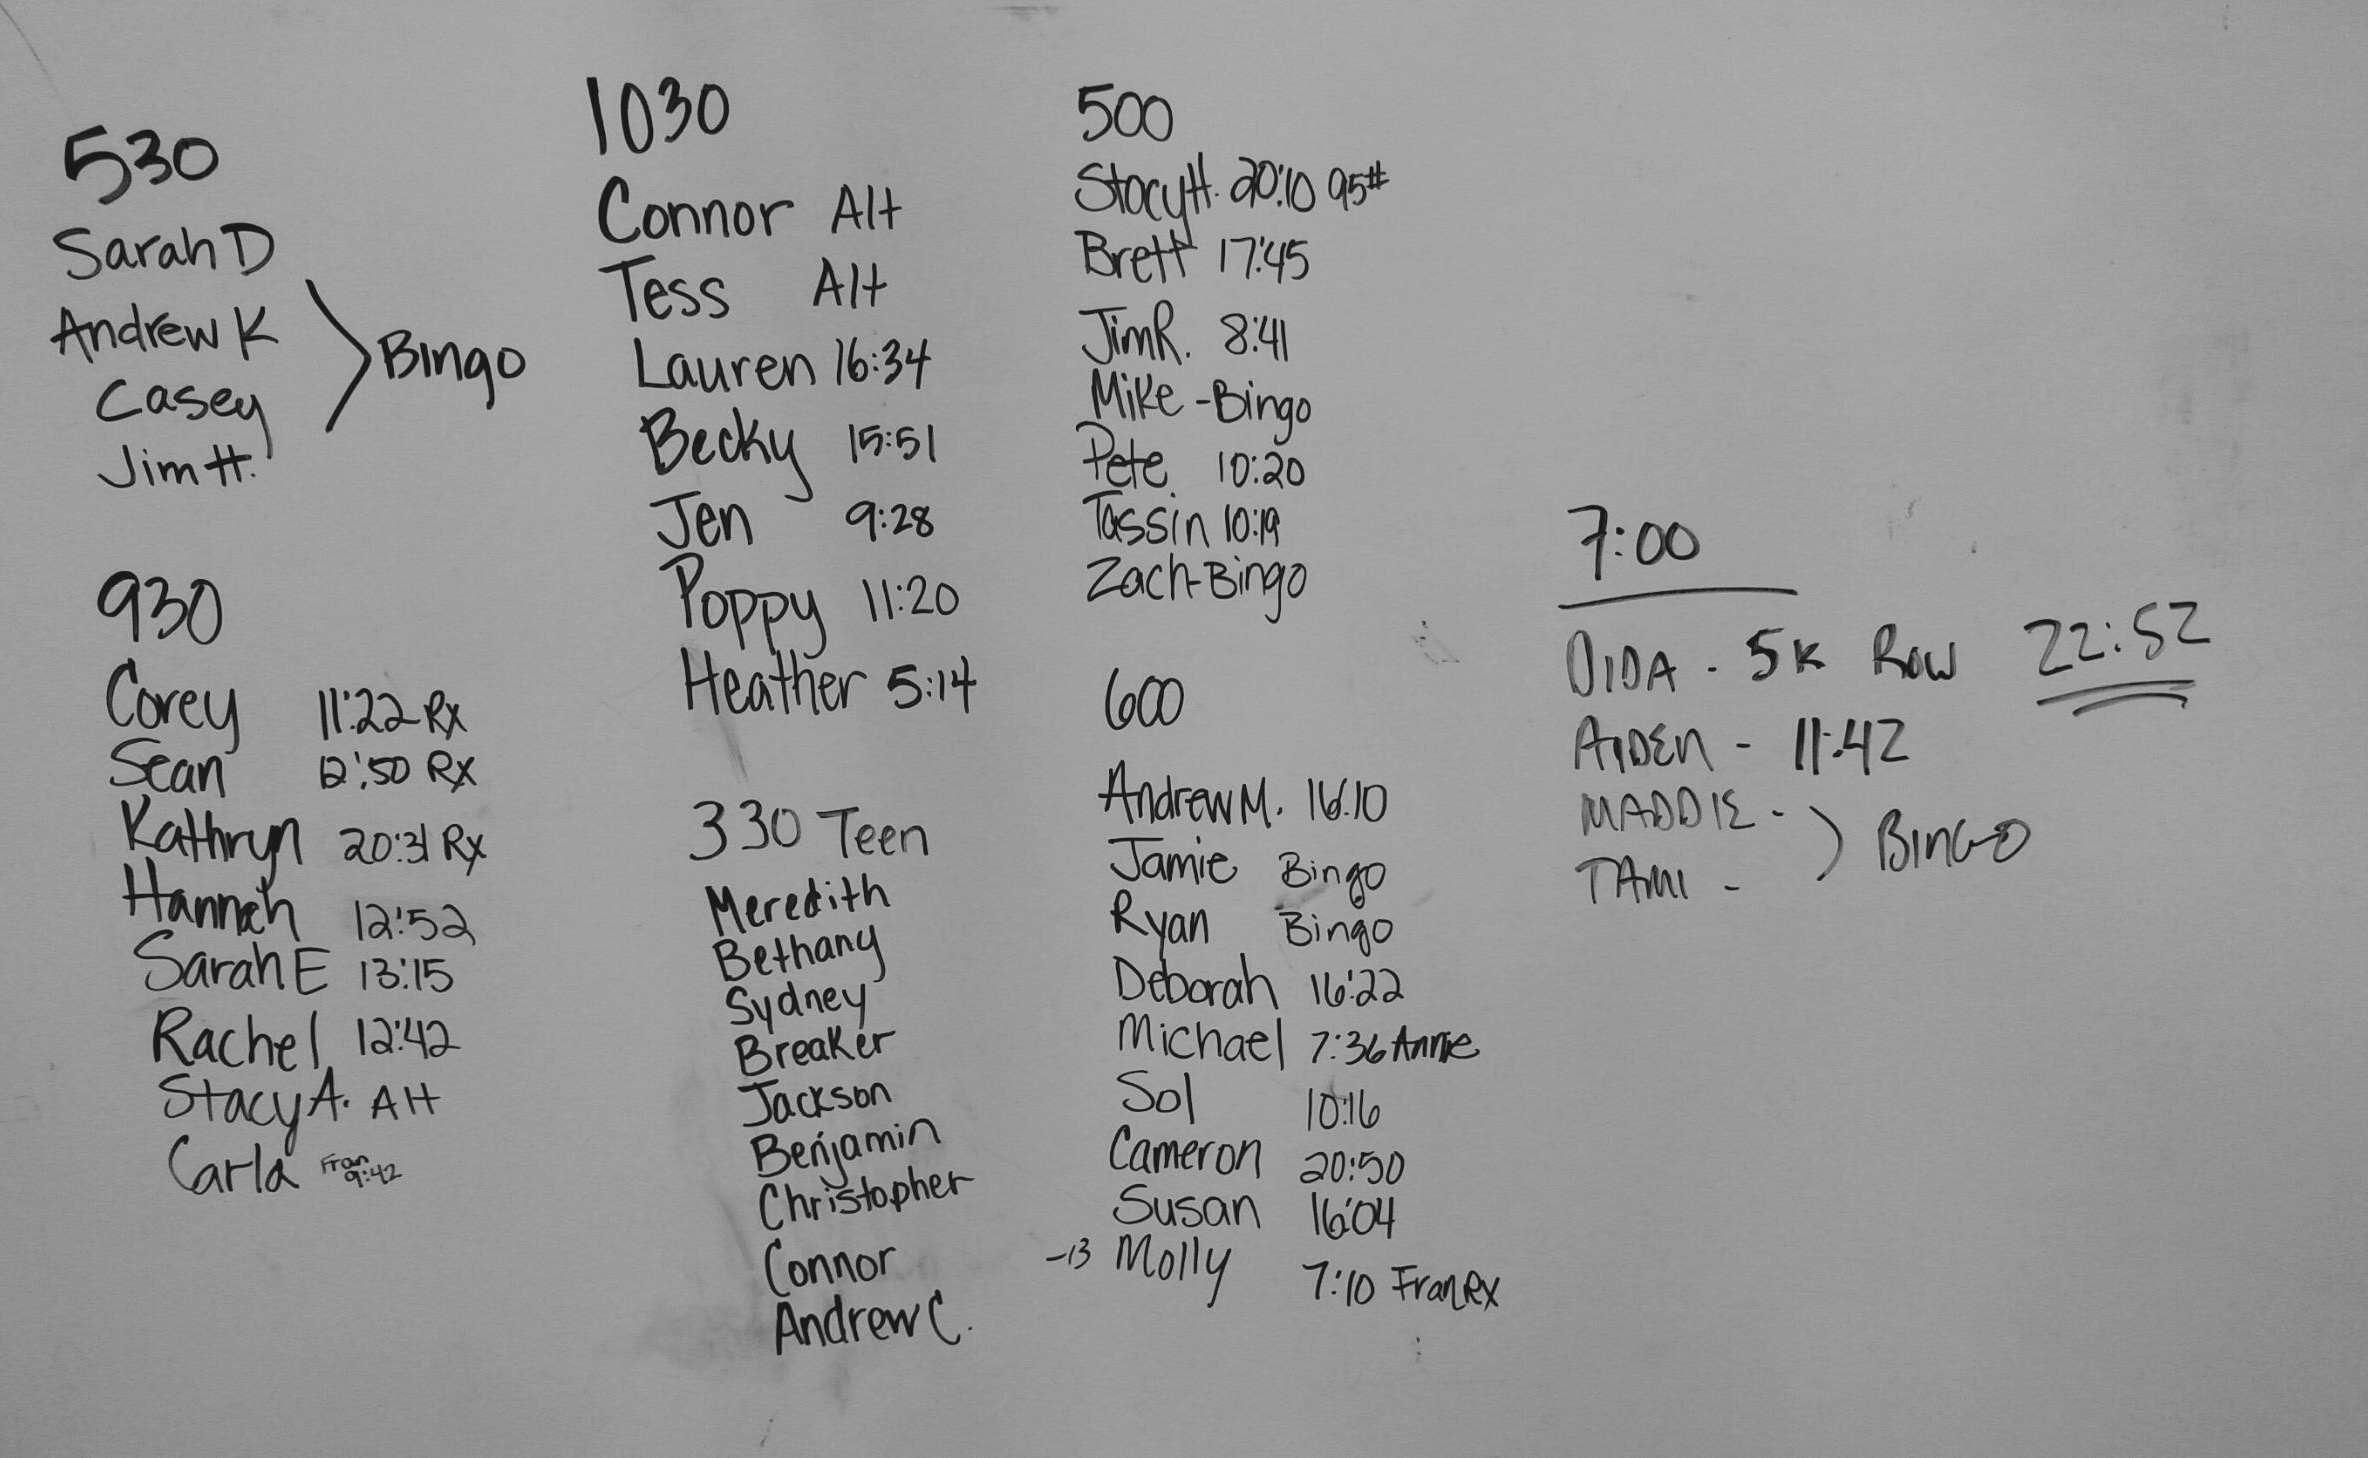 530
Sarah D
Andrew K
Casey
Jim H.
Bingo
930
Corey 11:22 Rx
Sean 12:50 Rx
Kathryn 20:31 Rx
Hannah 12:52
Sarah E 13:15
Rachel 12:42
Stacy A. Alt
Carla Fran 9:42
1030
Connor Alt
Tess Alt
Lauren 16:34
Becky 15:51
Jen 9:28
Poppy 11:20
Heather 5:14
330 Teen
Meredith
Bethany
Sydney
Breaker
Jackson
Benjamin
Christopher
Connor
Andrew C.
500
Stacy H. 20:10 95#
Brett 17:45
Jim R. 8:41
Mike - Bingo
Pete 10:20
Tassin 10:19
Zach - Bingo
600
Andrew M. 16:10
Jamie Bingo
Ryan Bingo
Deborah 16:22
Michael 7:36 Annie
Sol 10:16
Cameron 20:50
Susan 16:04
-13 Molly 7:10 Fran Rx
7:00
DIDA - 5K ROW 22:52
AIDEN - 11:42
MADDIE -
TAMI -
BINGO